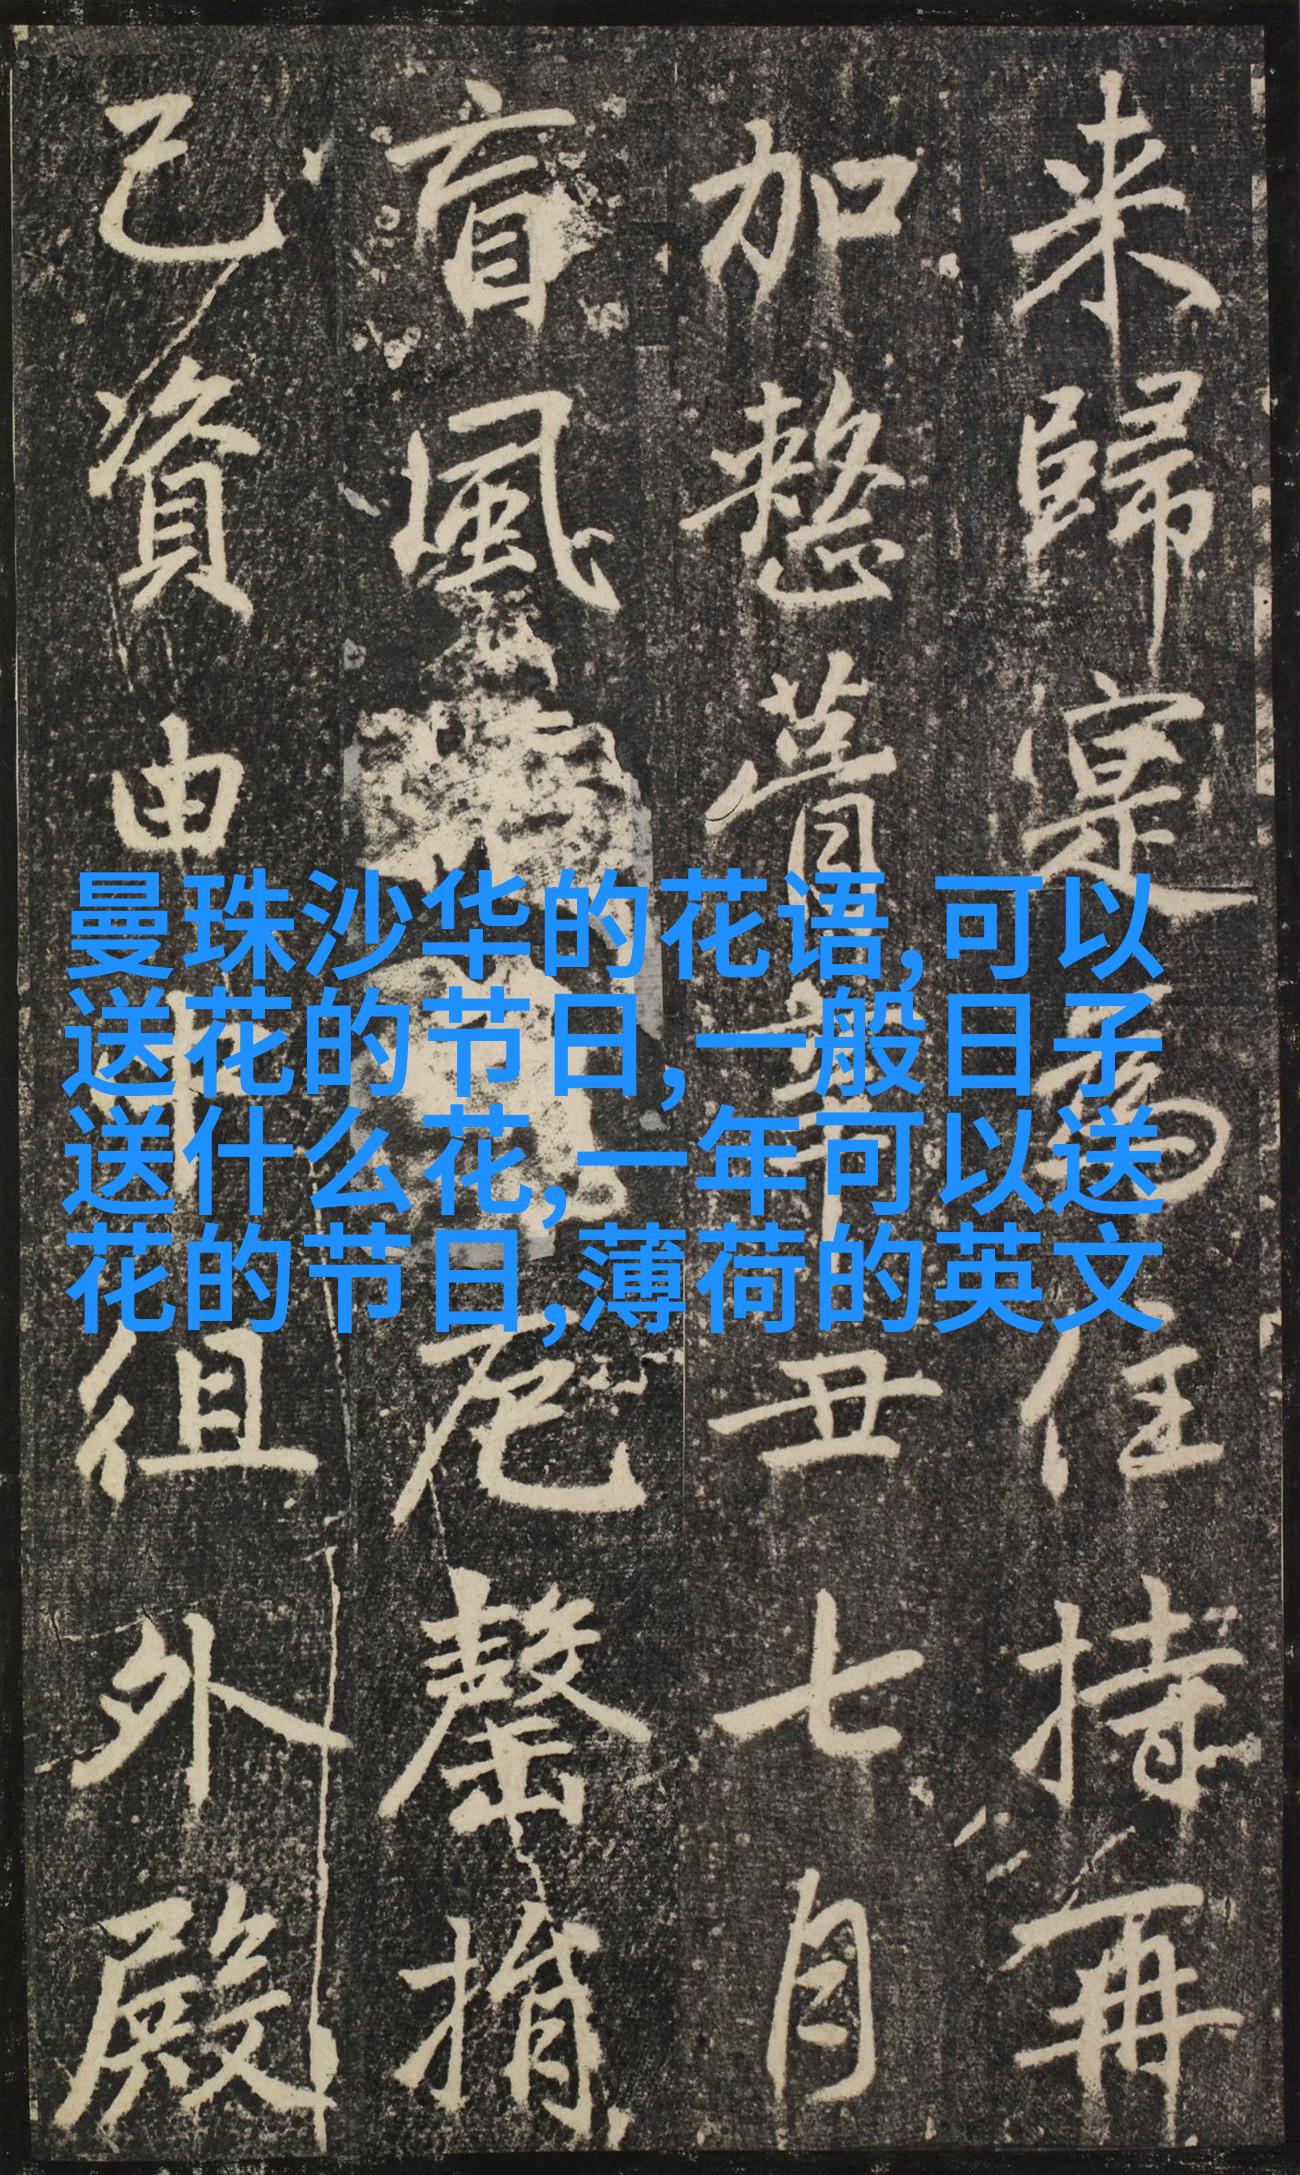 来歸寔為任持再
加整葺丑七月
盲風尼罄捐
己資由中徂外殿
曼珠沙华的花语,可以
送花的节日,一般日子
送什么花,一年可以送
花的节日,薄荷的英文